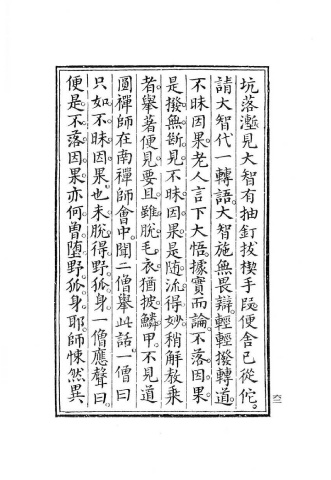 坑落壍見大智有抽釘拔楔手段便舍已從佗。
請大智代一轉語。大智施無畏辯。輕輕撥轉道
不昧因果。老人言下大悟。據實而論。不落因果
是撥無斷見。不昧因果是随流得妙。稍解教乘
者。舉著便見。要且雖脫毛衣。猶披鱗甲。不見道
圓禪師在南禪師會中。聞二僧舉此話。一僧曰
只如不昧因果。也未脫得野狐身。一僧應聲曰。
便是不落因果。亦何曾墮野狐身耶。師悚然異